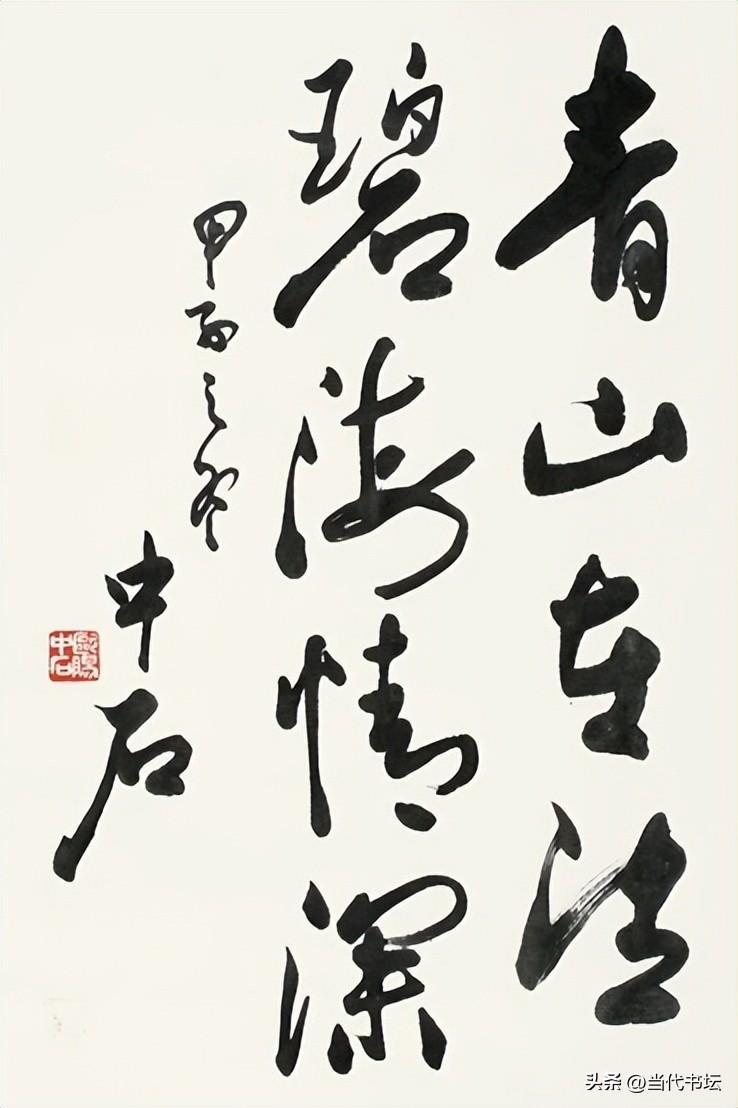 青山在望
碧海情深
甲子之冬
中石
欧阳中石
头条 @当代书坛